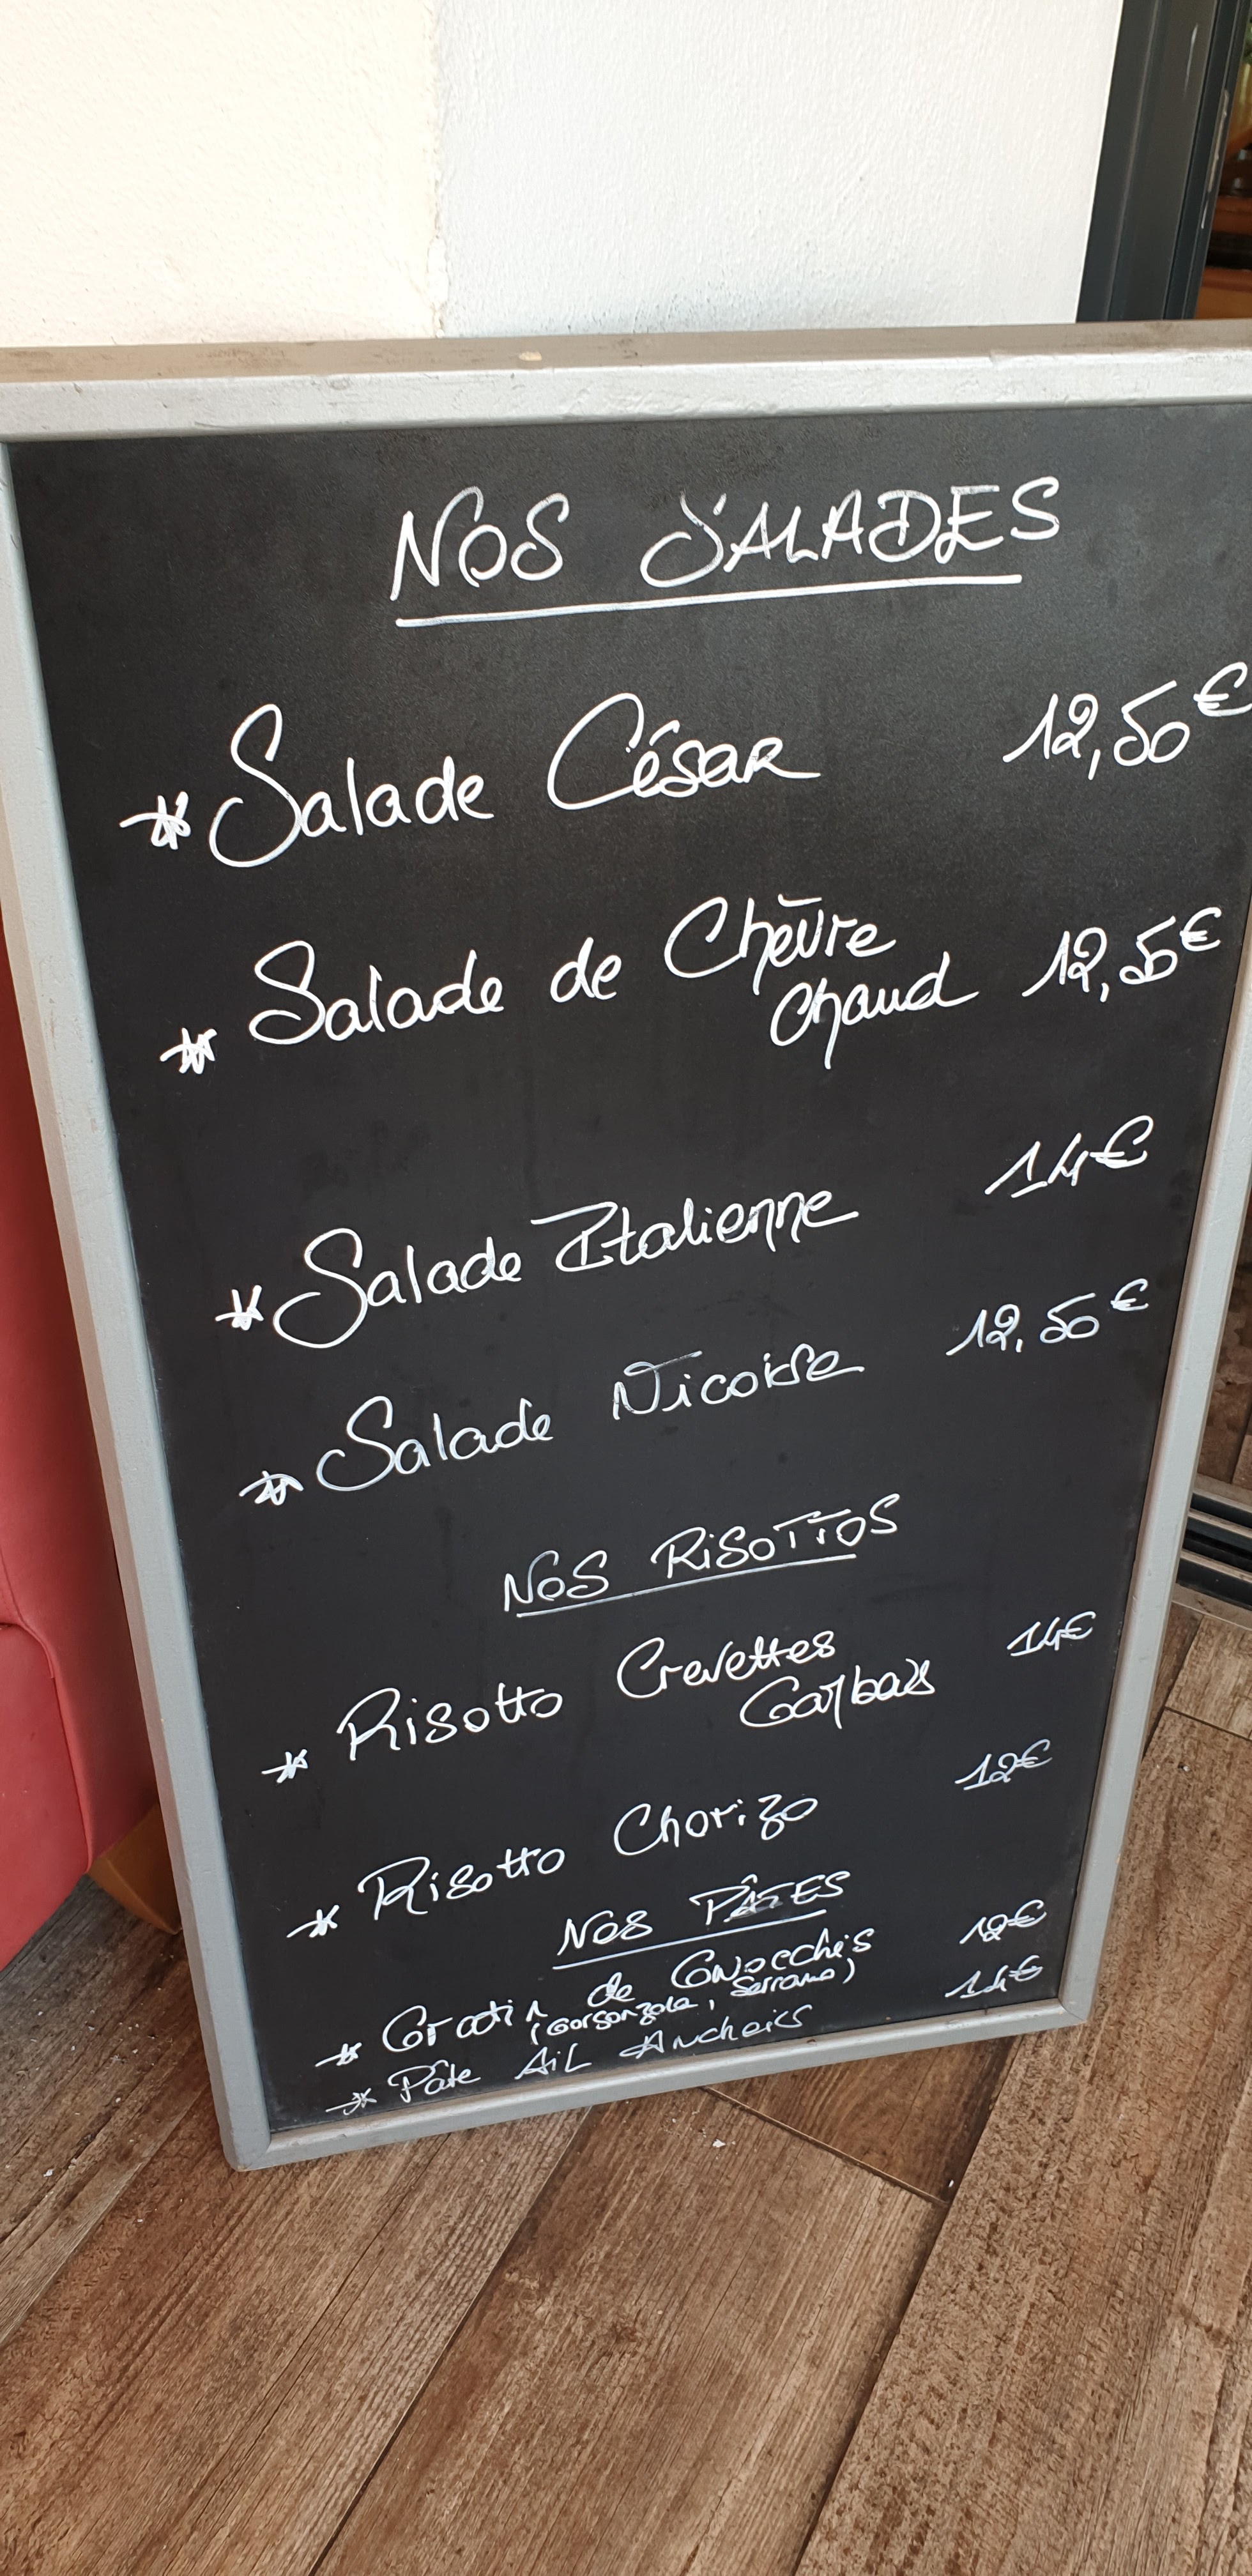 NOS SALADES
* Salade César 12,50€
* Salade de Chèvre
chaud 12,50€
* Salade Italienne 14€
* Salade Nicoise 12,50€
NOS RISOTTOS
* Risotto Crevettes 14€
Gambas
* Risotto Chorizo 12€
NOS PÂTES
* Gratin de Gnocchis 12€
(Gorgonzola, Serrano)
* Pâte Ail Anchois 14€